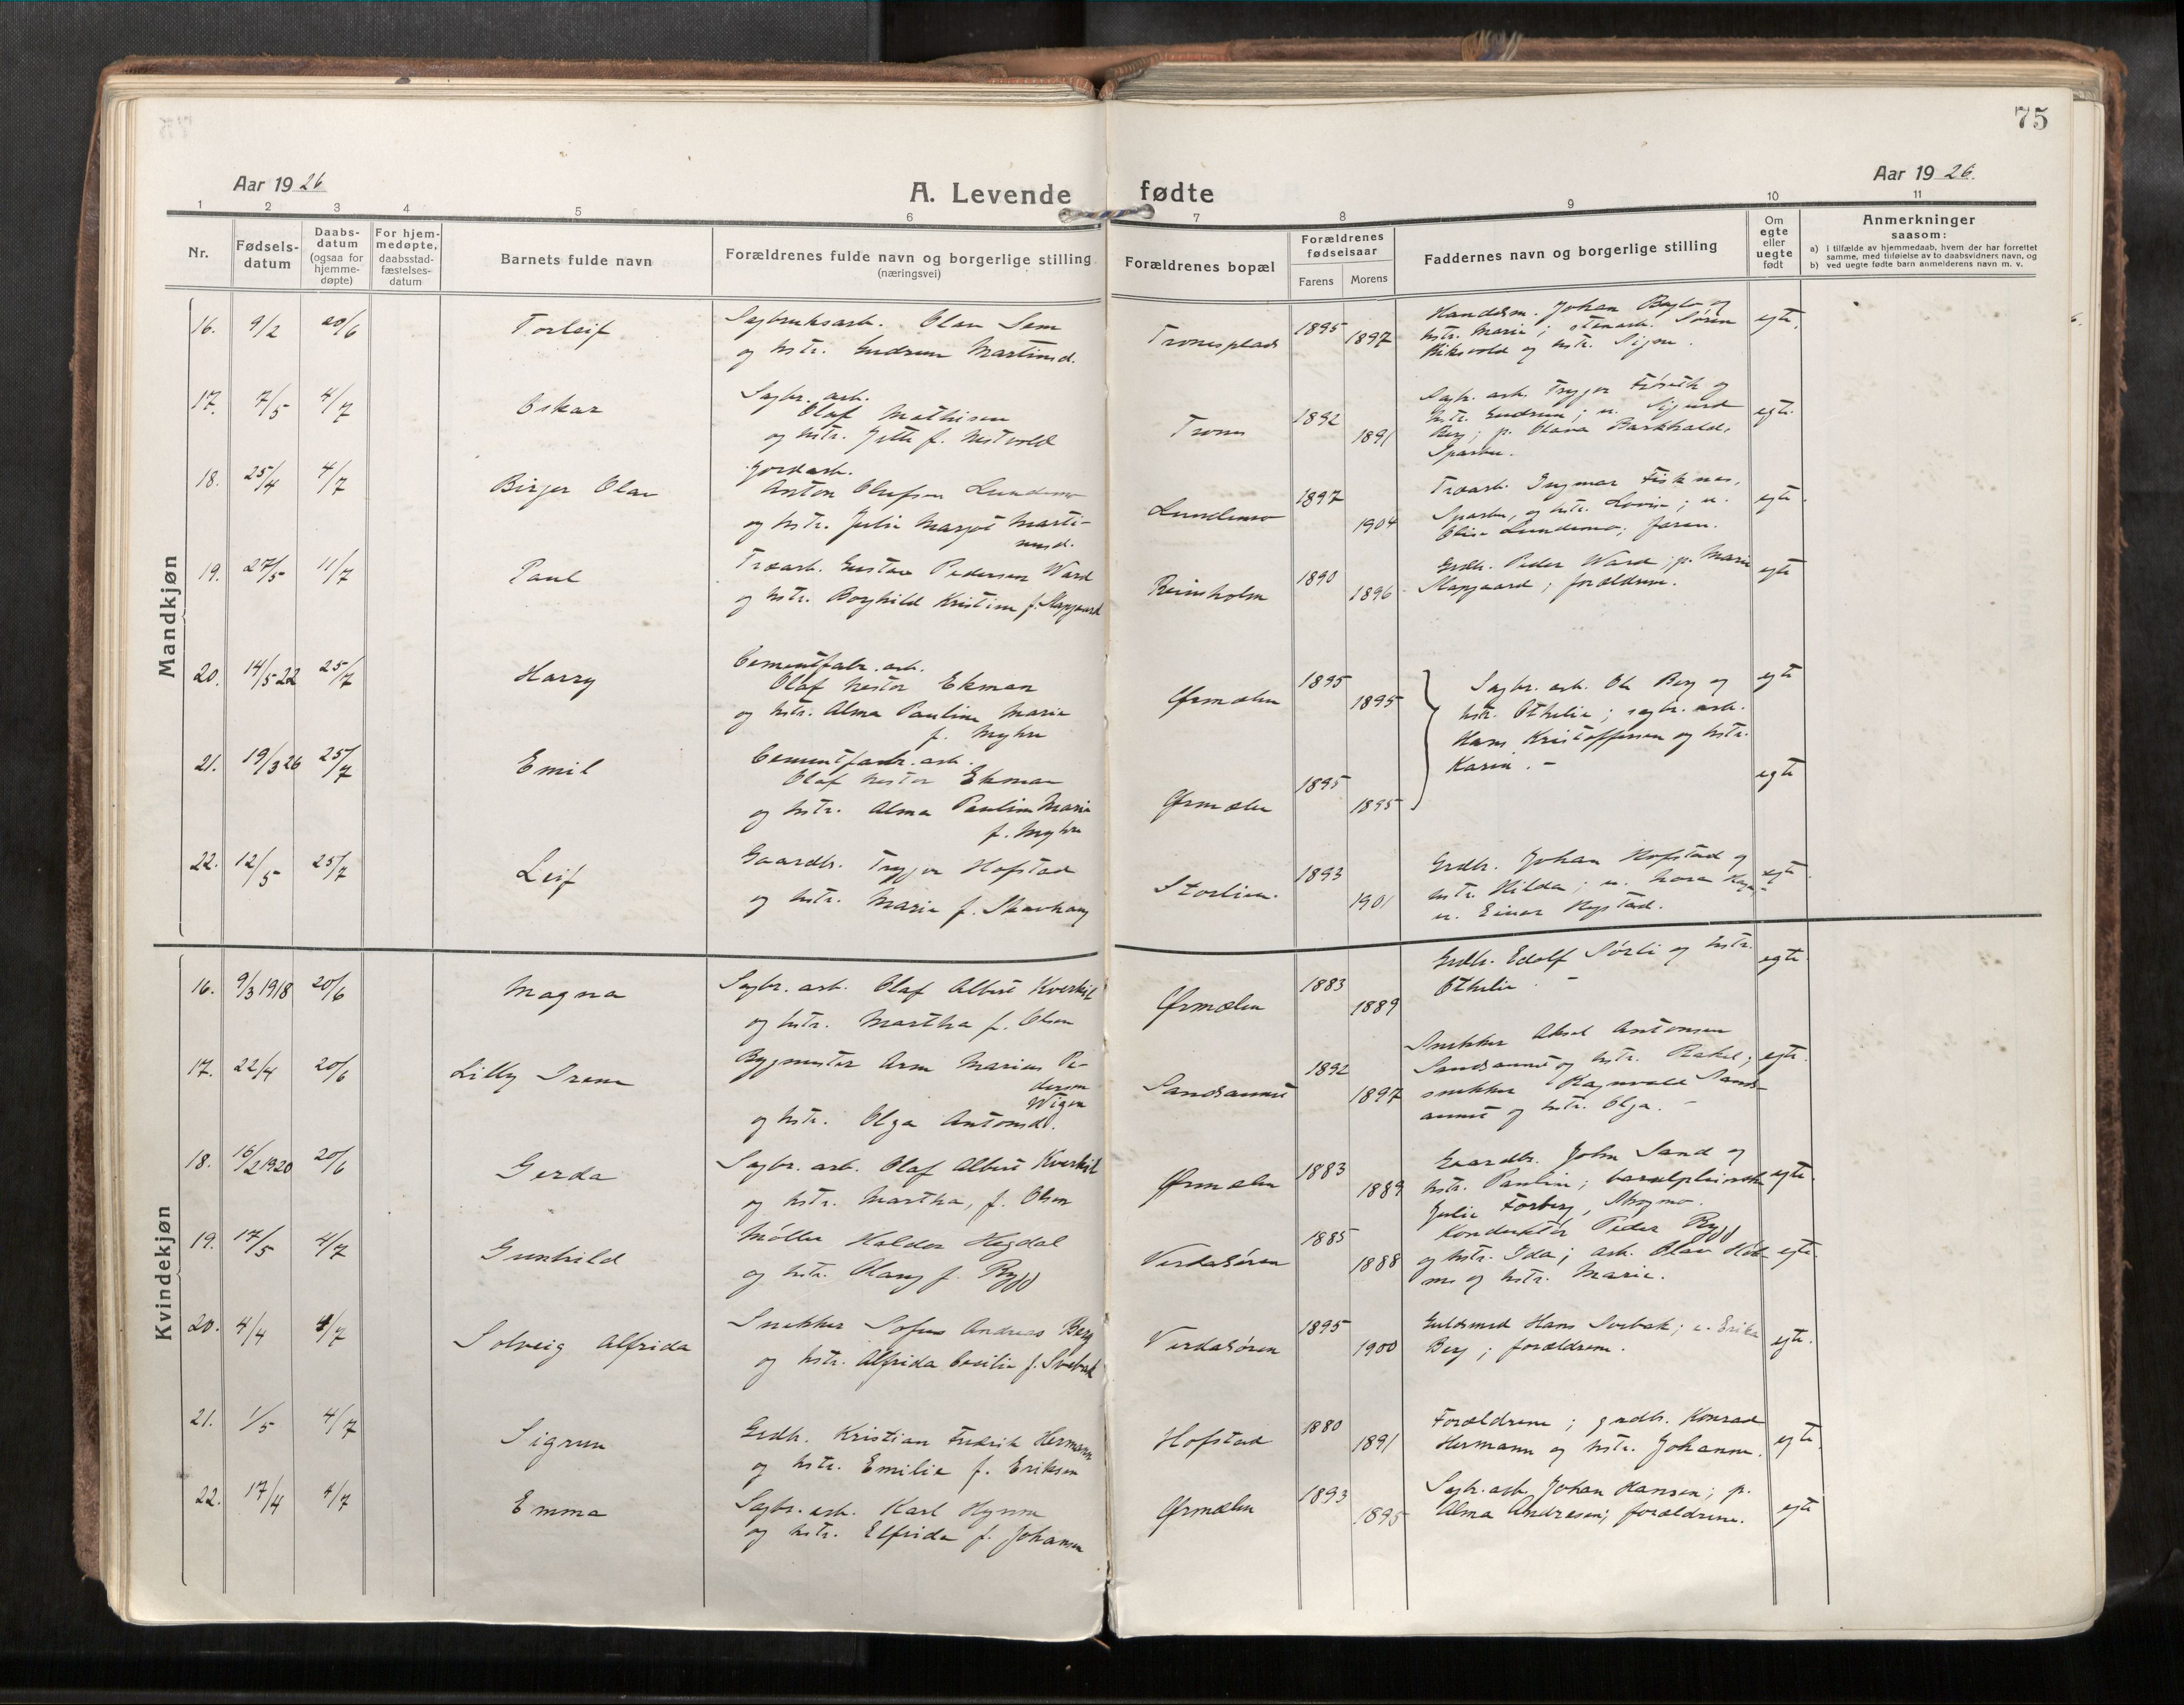 75
Aar 19 26
A. Levende fødte
Aar 19 26.
1 2 3 4 5 6 7 8 9 10 11
Nr.
Fødsels-
datum
Daabs-
datum
(ogsaa for
hjemme-
døpte)
For hjem-
medøpte,
daabsstad-
fæstelses-
datum
Barnets fulde navn
Forældrenes fulde navn og borgerlige stilling
(næringsvei)
Forældrenes bopæl
Forældrenes
fødselsaar
Farens Morens
Faddernes navn og borgerlige stilling
Om
egte
eller
uegte
født
Anmerkninger
saasom:
a) i tilfælde av hjemmedaab, hvem der har forrettet
samme, med tilføielse av to daabsvidners navn, og
b) ved uegte fødte barn anmelderens navn m. v.
Mandkjøn
16. 9/2 20/6 Torleif
Sagbruksarb. Olav Sem
og hstr. Gudrun Martinsd.
Tronesplads 1895 1897
Handelsm. Johan Bogbo og
hstr. Marie; stenarb. Søren
og hstr. Signe.
egte.
17. 7/5 4/7 Oskar
Sagbr. arb.
Olaf Mathisen
og hstr. Jette f. Nestvold
Trones 1892 1891
Sagbr. arb. Trygve og
hstr. Gudrun; u. Sigurd
Berg; p. Olava Barkhald,
Sparbu.
egte.
18. 25/4 4/7 Birger Olav
Jordarb.
Anton Olufsen Lundemo
og hstr. Julie Margot Marti-
nusd.
Lundemo 1897 1904
Træarb. Ingmar Fisknes,
Sparbu, og hstr. Lovise; u.
Olise Lundemo; faren.
egte.
19. 27/5 11/7 Paul
Træarb. Gustav Pedersen Ward
og hstr. Borghild Kristine f. Slapgaard
Reinsholm 1890 1896
Grdbr. Peder Ward; p. Marie
Slapgaard; forældrene.
egte
20. 14/5 22 25/7 Harry
Cementfabr. arb.
Olaf Nestor Ekman
og hstr. Alma Pauline Marie
f. Myhre
Ørmelen 1895 1895
Sagbr. arb. Ole Berg og
hstr. Othelie; sagbr. arb.
Hans Kristoffersen og hstr.
Karen. –
egte
21. 19/3 26 25/7 Emil
Cementfabr. arb.
Olaf Nestor Ekman
og hstr. Alma Pauline Marie
f. Myhre
Ørmelen 1895 1895
egte
22. 12/5 25/7 Leif
Gaardbr. Trygve Hofstad
og hstr. Marie f. Skavhaug
Storlien. 1893 1901
Grdbr. Johan Hofstad og
hstr. Hilda; u. Nora
u. Einar Hofstad.
egte.
Kvindekjøn
16. 9/3 1918 20/6 Magna
Sagbr. arb. Olaf Albert Kverkil
og hstr. Martha f. Olsen
Ørmelen 1883 1889
Grdbr. Edolf Sørli og hstr.
Othelie. –
egte.
17. 22/4 20/6 Lilly Irene
Bygmester Arne Marius Pe-
dersen
Wigen
og hstr. Olga Antonsd.
Sandsaunet 1892 1897
Snekker Aksel Antonsen
Sandsaunet og hstr. Rakel;
snekker Ragnvald Sands-
aunet og hstr. Olga. –
egte.
18. 16/2 1920 20/6 Gerda
Sagbr. arb. Olaf Albert Kverkil
og hstr. Martha, f. Olsen
Ørmelen 1883 1889
Gaardbr. John Sand og
hstr. Pauline; barselpleierske
Julie Forberg, Skogmo.
egte.
19. 17/5 4/7 Gunhild
Møller Haldor Hegdal
og hstr. Olaug f. Rygg
Verdalsøren 1885 1888
Konduktør Peder Rygg
og hstr. Ida; arb. Olav Hol-
me og hstr. Marie.
egte.
20. 4/4 4/7 Solveig Alfrida
Snekker Sofus Andreas Berg
og hstr. Alfrida Cecilie f. Svebak
Verdalsøren 1895 1900
Guldsmed Hans Svebak; u. Erika
Berg; forældrene.
egte.
21. 1/5 4/7 Sigrun
Grdbr. Kristian Fredrik Hermann
og hstr. Emilie f. Eriksen
Hofstad 1880 1891
Forældrene; grdbr. Konrad
Hermann og hstr. Johanne.
egte.
22. 17/4 4/7 Emma
Sagbr. arb. Karl Hynne
og hstr. Elfrida f. Johansen
Ørmelen 1893 1895
Sagbr. arb. Johan Hansen; p.
Alma Andresen; forældrene.
egte